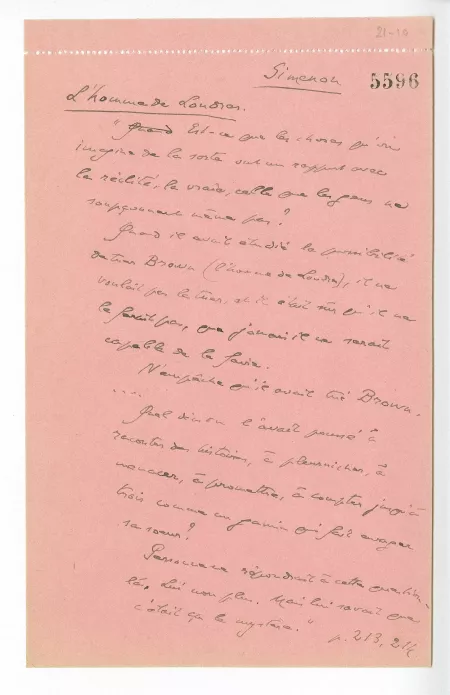 21-10
Simenon.
5596
L'homme de Londres.
" Quand Est-ce que les choses qu'on
imagine de la sorte ont un rapport avec
la réalité, la vraie, celle que les gens ne
soupçonnent même pas ?
Quand il avait étudié la possibilité
de tuer Brown (l'homme de Londres), il ne
voulait pas le tuer, et il était sûr qu'il ne
le ferait pas, que jamais il ne serait
capable de le faire.
N'empêche qu'il avait tué Brown.
....
Quel démon l'avait poussé à
raconter des histoires, à pleurnicher, à
menacer, à promettre, à compter jusqu'à
trois comme un gamin qui fait enrager
sa soeur ?
Personne ne répondrait à cette question-
là, lui non plus. Mais lui savait que
c'était ça le mystère. "
p. 213, 214